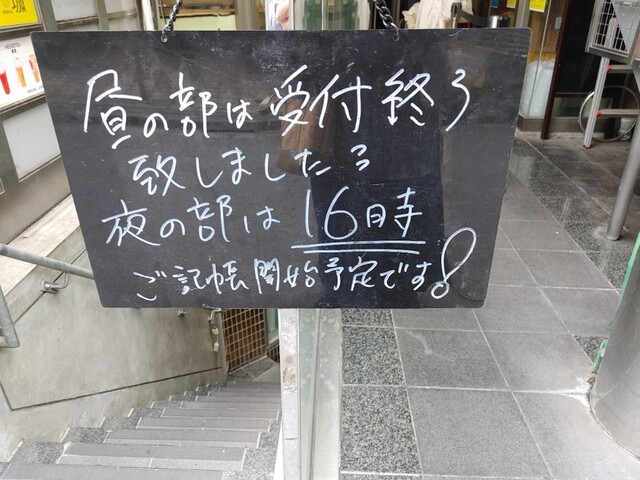 昼の部は受付終了
致しました〜
夜の部は16時
ご記帳開始予定です!